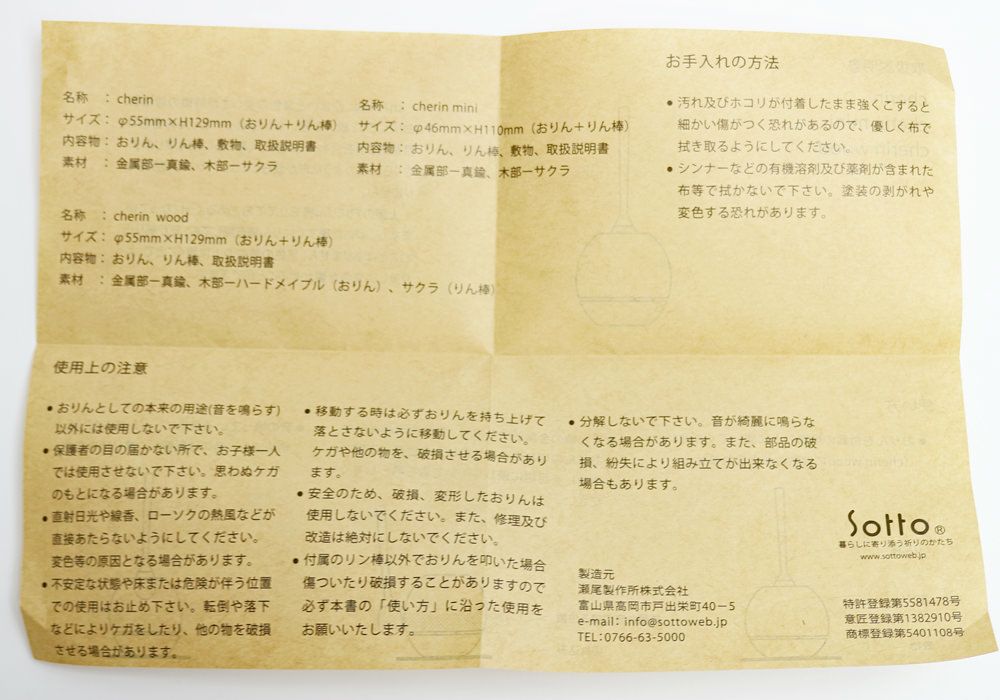 名称　：cherin
サイズ：φ55mm×H129mm（おりん＋りん棒）
内容物：おりん、りん棒、敷物、取扱説明書
素材　：金属部ー真鍮、木部ーサクラ
名称　：cherin mini
サイズ：φ46mm×H110mm（おりん＋りん棒）
内容物：おりん、りん棒、敷物、取扱説明書
素材　：金属部ー真鍮、木部ーサクラ
名称　：cherin wood
サイズ：φ55mm×H129mm（おりん＋りん棒）
内容物：おりん、りん棒、取扱説明書
素材　：金属部ー真鍮、木部ーハードメイプル（おりん）、サクラ（りん棒）
お手入れの方法
●汚れ及びホコリが付着したまま強くこすると
細かい傷がつく恐れがあるので、優しく布で
拭き取るようにしてください。
●シンナーなどの有機溶剤及び薬剤が含まれた
布等で拭かないで下さい。塗装の剥がれや
変色する恐れがあります。
使用上の注意
●おりんとしての本来の用途(音を鳴らす)
以外には使用しないで下さい。
●保護者の目の届かない所で、お子様一人
では使用させないで下さい。思わぬケガ
のもとになる場合があります。
●直射日光や線香、ローソクの熱風などが
直接あたらないようにしてください。
変色等の原因となる場合があります。
●不安定な状態や床または危険が伴う位置
での使用はお止め下さい。転倒や落下
などによりケガをしたり、他の物を破損
させる場合があります。
●移動する時は必ずおりんを持ち上げて
落とさないように移動してください。
ケガや他の物を、破損させる場合があり
ます。
●安全のため、破損、変形したおりんは
使用しないでください。また、修理及び
改造は絶対にしないでください。
●付属のリン棒以外でおりんを叩いた場合
傷ついたり破損することがありますので
必ず本書の「使い方」に沿った使用を
お願いいたします。
●分解しないで下さい。音が綺麗に鳴らな
くなる場合があります。また、部品の破
損、紛失により組み立てが出来なくなる
場合もあります。
製造元
瀬尾製作所株式会社
富山県高岡市戸出栄町40－5
e-mail：info@sottoweb.jp
TEL：0766-63-5000
Sotto®
暮らしに寄り添う祈りのかたち
www.sottoweb.jp
特許登録第5581478号
意匠登録第1382910号
商標登録第5401108号